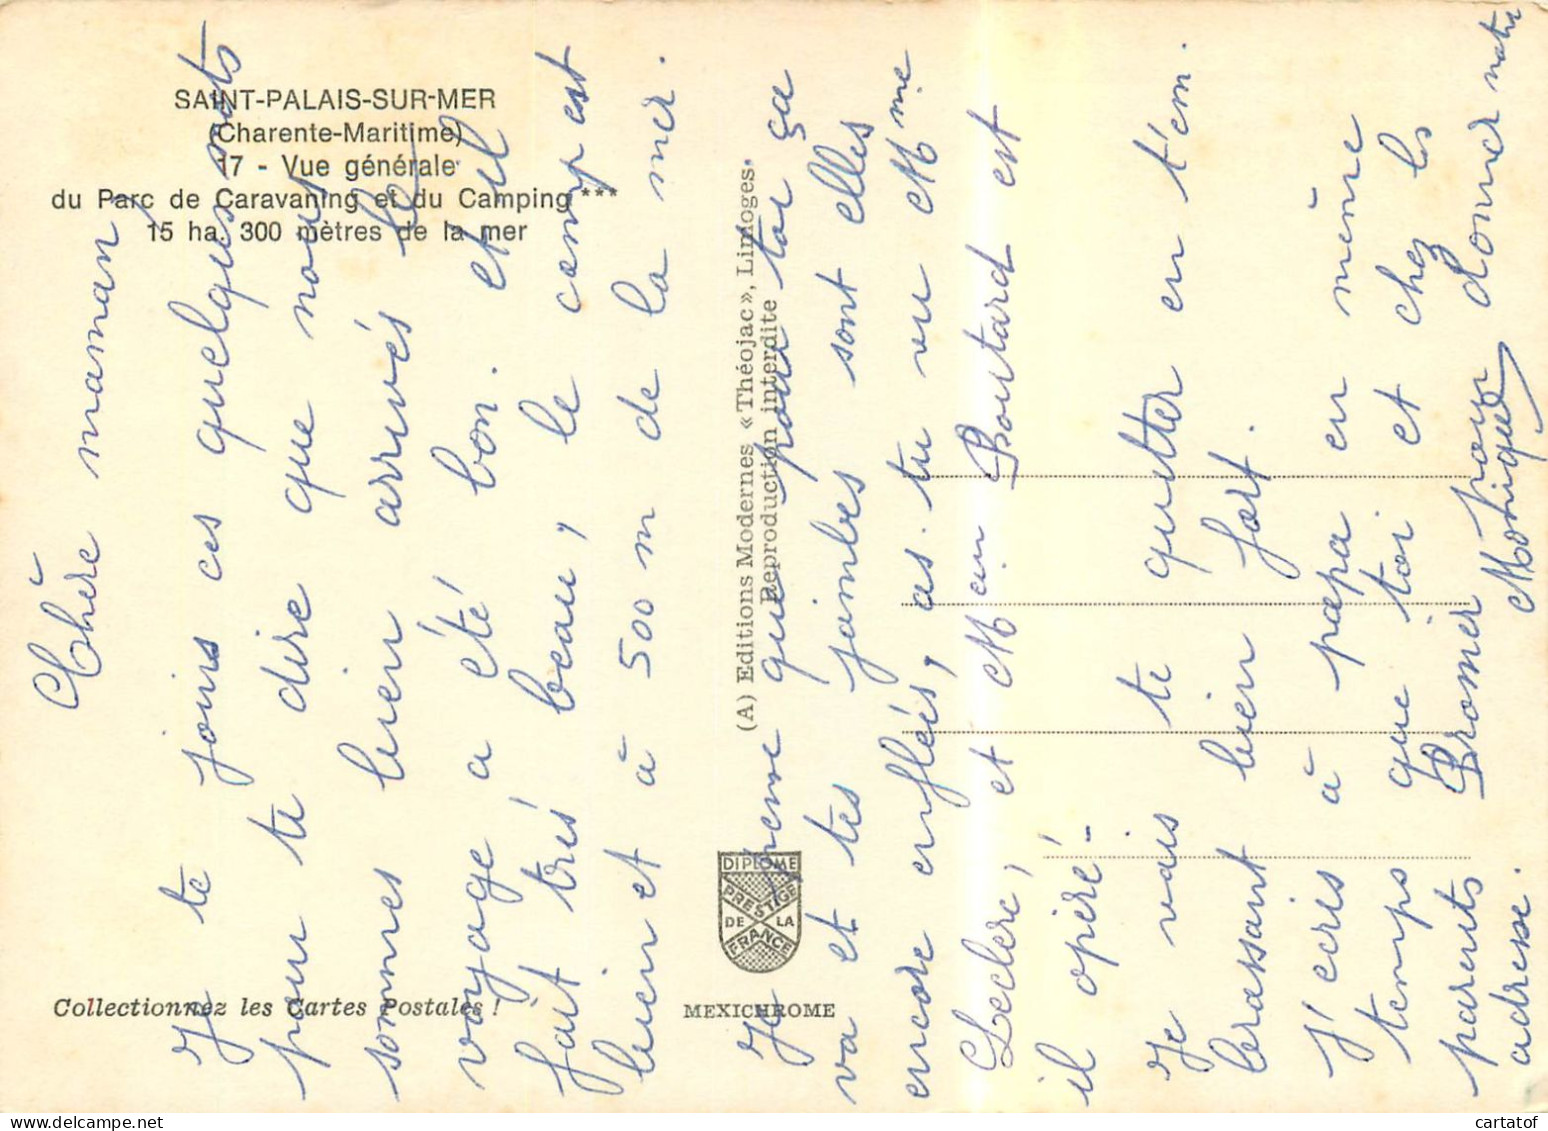 SAINT-PALAIS-SUR-MER
(Charente-Maritime)
17 - Vue générale
du Parc de Caravaning et du Camping ***
15 ha. 300 mètres de la mer
Chère maman,
Je te joins ces quelques mots
pour te dire que nous
sommes bien arrivés le
voyage a été bon. et il
fait très beau, le camp est
bien et à 500 m de la mer.
Je pense que pour toi ça
va et tes jambes sont elles
encore enflées, as-tu vu Mme
Leclere, et Men Boutard est
il opéré-
Je vais te quitter en t'em.
brassant bien fort.
J'écris à papa en même
temps que toi et chez les
parents Promer pour donner notre
adresse.
Monique
(A) Editions Modernes « Théojac », Limoges.
Reproduction interdite
DIPLOME
PRESTIGE
DE LA
FRANCE
Collectionnez les Cartes Postales !
MEXICHROME
cartatof